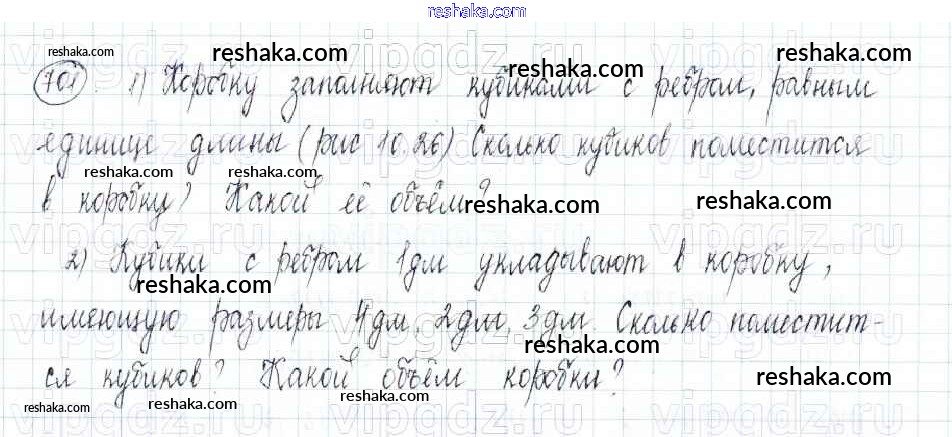 reshaka.com
reshaka.com reshaka.com reshaka.com
701. 1) Коробку заполняют кубиками с ребром, равным
единице длины (рис 10.26) Сколько кубиков поместится
reshaka.com
в коробку? Какой её объём? reshaka.com reshaka.com
2) Кубики с ребром 1дм укладывают в коробку,
reshaka.com
имеющую размеры 4дм, 2дм, 3дм. Сколько поместит-
reshaka.com
ся кубиков? Какой объём коробки? reshaka.com
reshaka.com reshaka.com reshaka.com